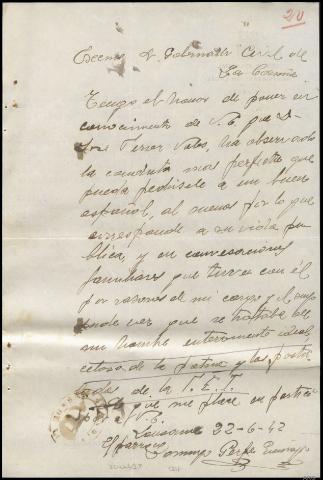 20
Excmo Sr Gobernador Civil de
La Coruña
Tengo el honor de poner en
conocimiento de V. que D
José Ferrer ha observado
la conducta mas perfecta que
pueda pedirsele a un buen
español, al menos por lo que
corresponde a su vida pu-
blica, y en conversaciones
familiares que tuve con él
por razones de mi cargo
pude ver que se trataba de
un hombre enteramente ideal
celoso de la patria y los postu
lados de la F.E.T.
que me place en partici
par a V.E.
22-6-42
El parroco
Domingo